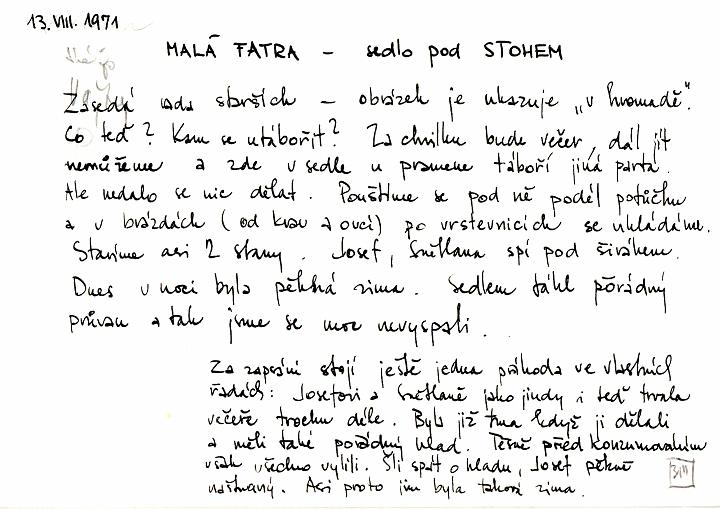 13. VIII. 1971
MALÁ FATRA – sedlo pod STOHEM
Zasedá rada starších – obrázek je ukazuje „v hromadě".
Co teď? Kam se utábořit? Za chvilku bude večer, dál jít
nemůžeme a zde v sedle u pramene táboří jiná parta.
Ale nedalo se nic dělat. Pouštíme se pod ně podél potůčku
a v brázdách (od krav a ovcí) po vrstevnicích se ukládáme.
Stavíme asi 2 stany. Josef, Světlana spí pod širákem.
Dnes v noci byla pěkná zima. Sedlem táhl pořádný
průvan a tak jsme se moc nevyspali.
Za zapsání stojí ještě jedna příhoda ve vlastních
řadách: Josefovi a Světlaně jako jindy i teď trvala
večeře trochu déle. Byla již tma když ji dělali
a měli také pořádný hlad. Těsně před konzumováním
však všechno vylili. Šli spát o hladu, Josef pěkně
naštvaný. Asi proto jim byla taková zima.